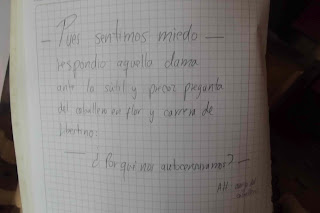 — Pues sentimos miedo —
respondio aquella dama
ante la sutil y procaz pregunta
del caballero en flor y carrera de
libertino:
— ¿Por qué nos autocensuramos? —